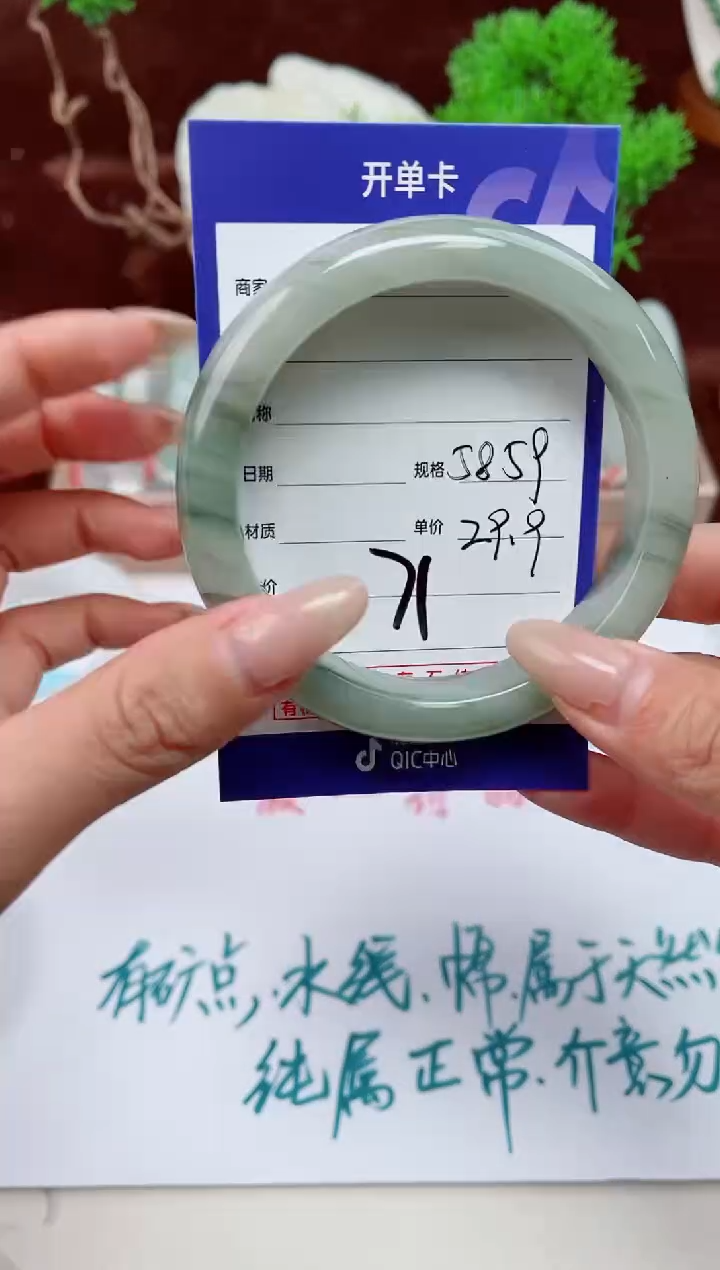 开单卡
商家
称
日期 规格 5859
材质 单价 29.9
价 71
有
QIC中心
有矿点,水线、棉、属于天然
纯属正常、介意勿